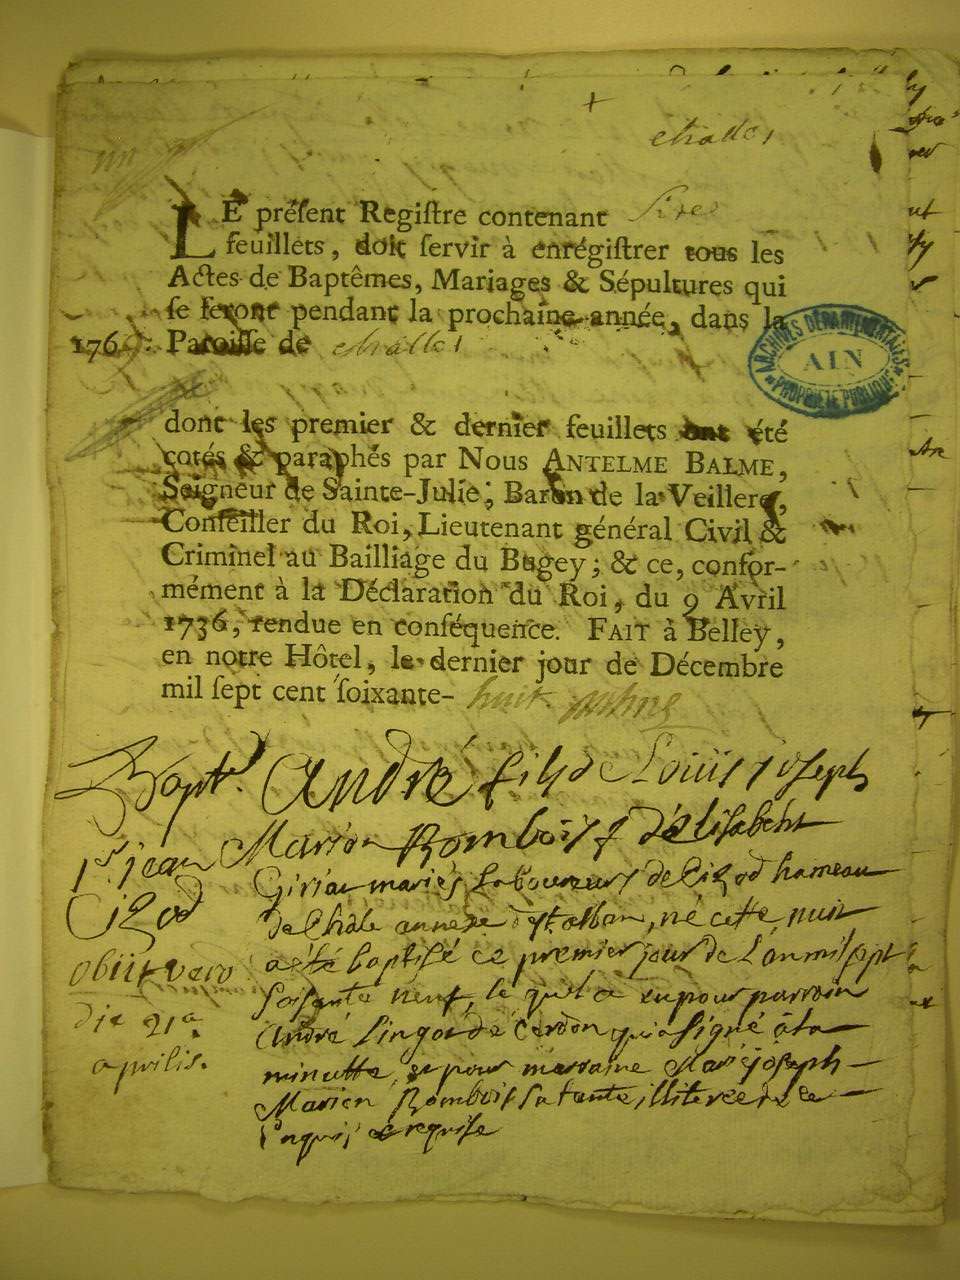 chades
LE préſent Regiſtre contenant
feuillets, doit ſervir à enrégiſtrer tous les
Actes de Baptêmes, Mariages & Sépultures qui
ſe ſeront pendant la prochaine année, dans la
1769: Paroiſſe de challes
ARCHIVES DÉPARTEMENTALES
AIN
PROPRIÉTÉ PUBLIQUE
dont les premier & dernier feuillets ont été
cotés & paraphés par Nous ANTELME BALME,
Seigneur de Sainte-Julie; Baron de la Veillere,
Conſeiller du Roi, Lieutenant général Civil &
Criminel au Bailliage du Bugey; & ce, confor-
mément à la Déclaration du Roi, du 9 Avril
1736, rendue en conſéquence. FAIT à Belley,
en notre Hôtel, le dernier jour de Décembre
mil ſept cent ſoixante- huit
Bapt. André fils de Louis joseph
Marion Rombois & d'élisabeht
1er jean
Cizod
Giriar mariés Laboureurs de Cizod hameau
de Chale annexe de st. alban, né cette nuit
a été baptisé ce premier jour de L'an mil sept
Soisante neuf, le quel a eu pour parrain
André Lingot de Cerdon qui a signé a la
minutte, et pour marraine Marie joseph
Marion Rombois sa tante, illiterée de ce
enquise & requise
obiit vero
die 21a
aprilis.